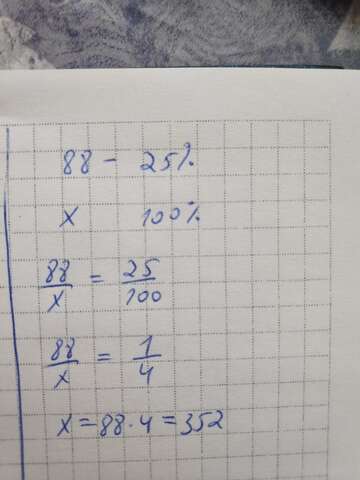 88 - 25%
x 100%
88/x = 25/100
88/x = 1/4
x = 88 · 4 = 352